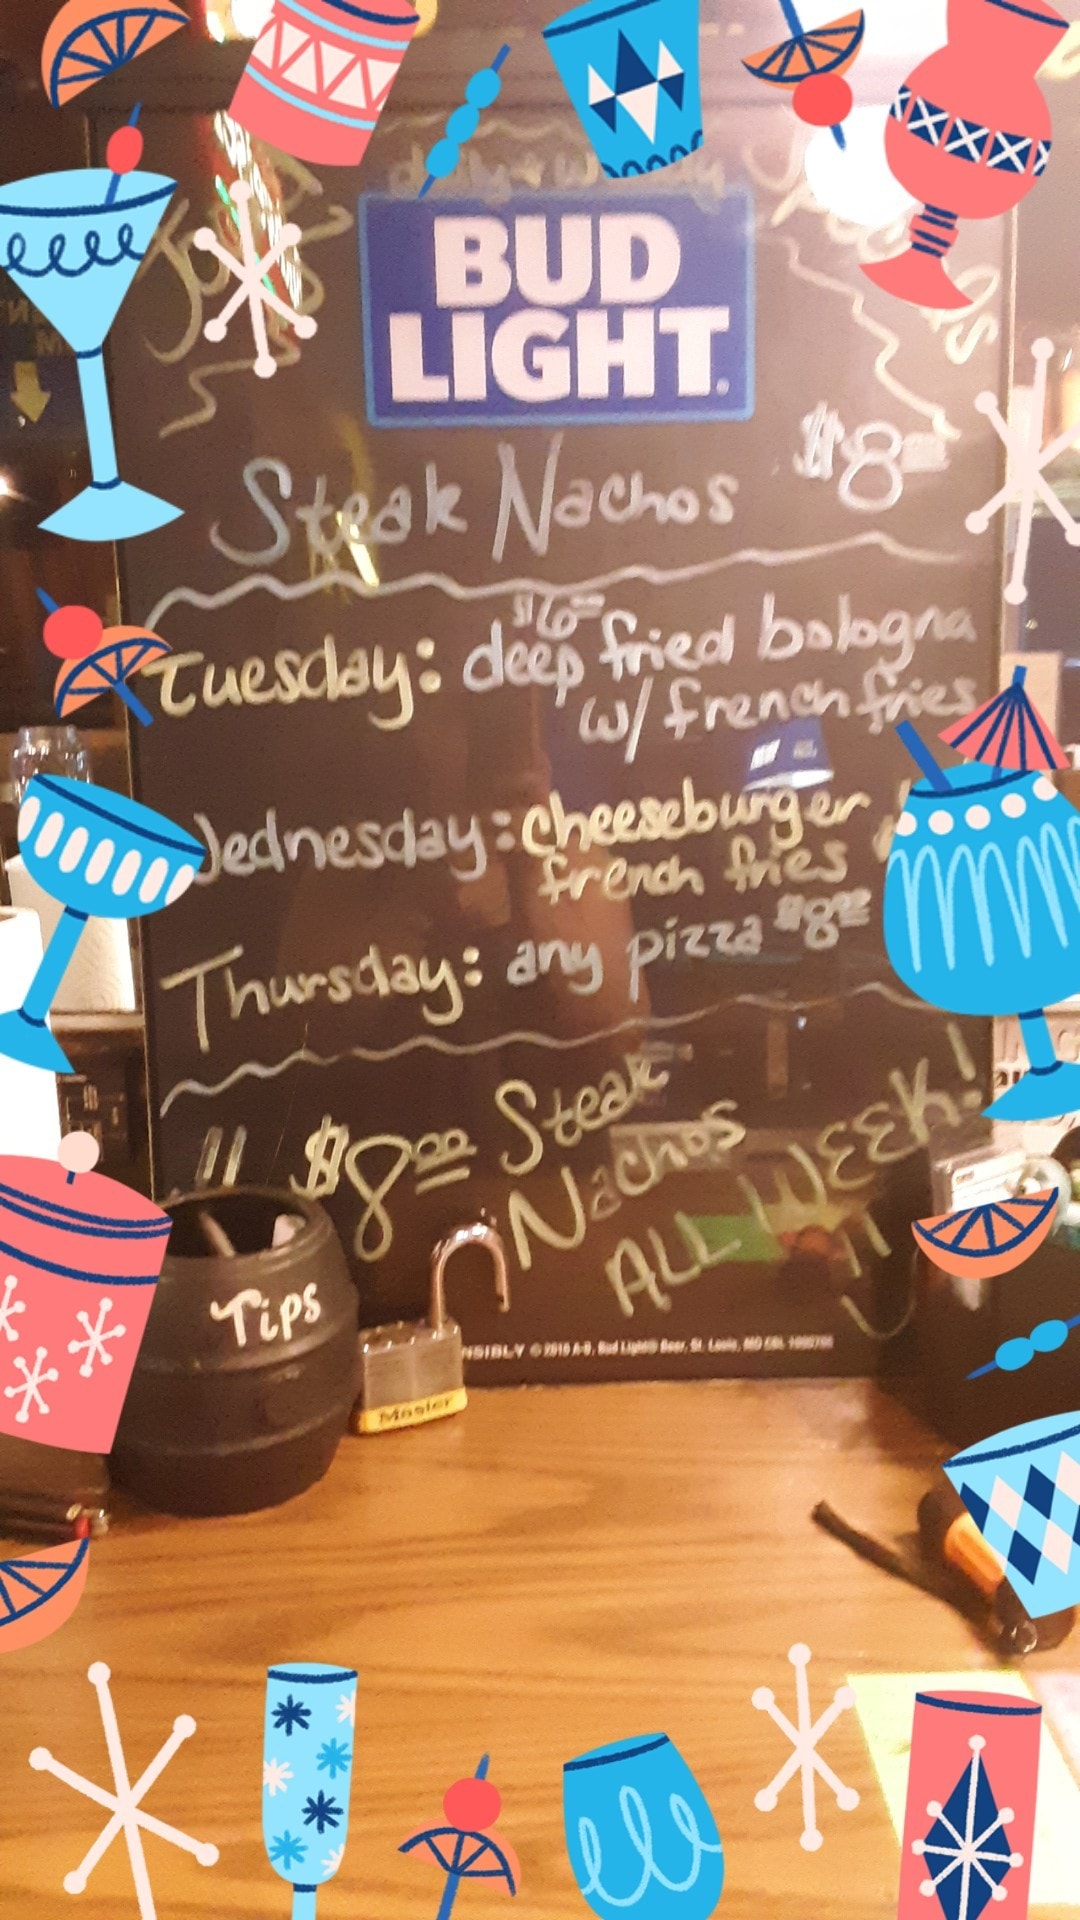 BUD
LIGHT
Steak Nachos $8.00
Tuesday: $6.00 deep fried bologna
w/ french fries
Wednesday: cheeseburger
french fries
Thursday: any pizza $8.00
$8.00 Steak
Nachos
ALL WEEK!
Tips
Master
NSIBLY © 2016 A-B, Bud Light® Beer, St. Louis, MO